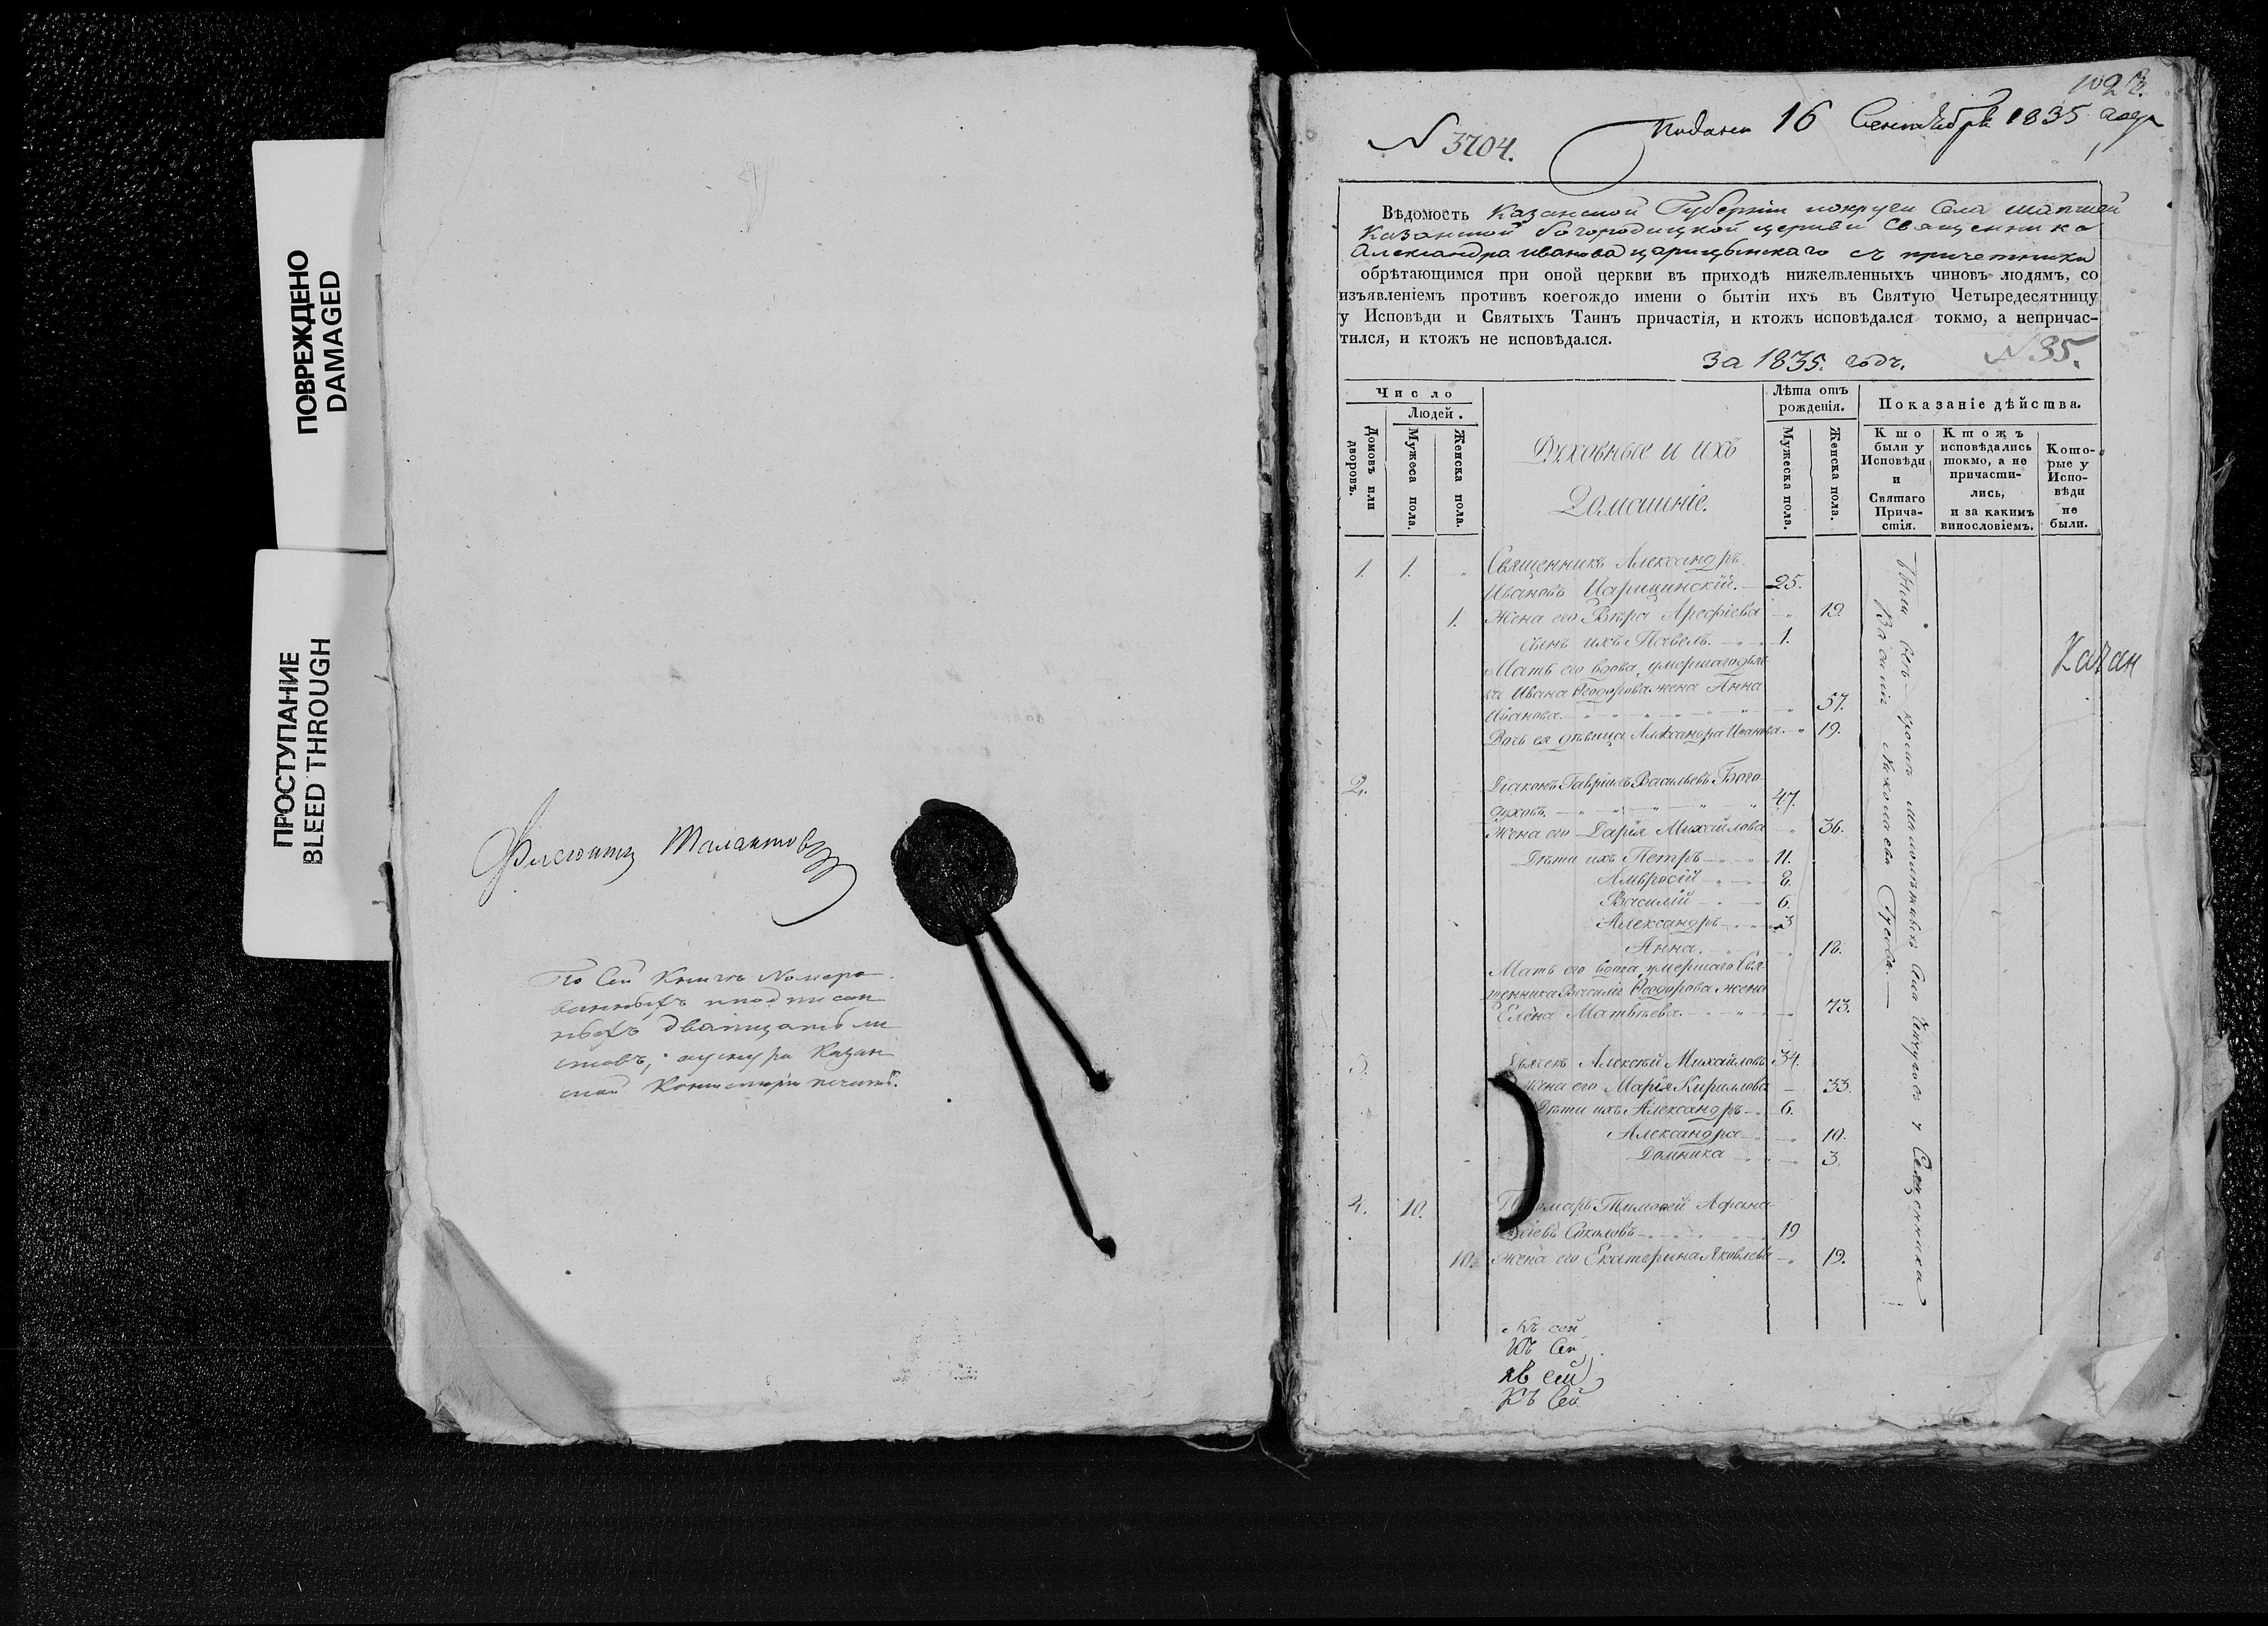 ПОВРЕЖДЕНО
DAMAGED
ПРОСТУПАНИЕ
BLEED THROUGH
По Сей Книге Номеро
ванныхъ и подписан
ныхъ дватцать ли
стовъ, Казан
ской Консисторіи печати.
N 3704.
Подана 16 Сентября 1835 года
Вѣдомость Казанской Губерніи Села
Казанской богородицкой церкви Священника
Александра иванова царицынскаго съ причетники
обрѣтающимся при оной церкви въ приходѣ нижеявленныхъ чиновъ людямъ, со
изъявленіемъ противъ коегождо имени о бытіи ихъ въ Святую Четыредесятницу
у Исповѣди и Святыхъ Таинъ причастія, и ктожъ исповѣдался токмо, а непричас-
тился, и ктожъ не исповѣдался.
за 1835. годъ.
N 35.
Число
Людей.
Домовъ или дворовъ.
Мужеса пола.
Женска пола.
Духовные и ихъ
Домашніе.
Лѣта отъ
рожденія.
Мужеска пола.
Женска пола.
Показаніе дѣйства.
Кто
были у
Исповѣди
и
Святаго
Прича-
стія.
Ктожъ
исповѣдались
токмо, а не
причасти-
лись,
и за какимъ
винословіемъ.
Кото-
рые у
Испо-
вѣди
не
были.
1. 1. Священникъ Александръ
Ивановъ Царицинскій. 25.
1. Жена его Вѣра Арефіева 19.
Сынъ ихъ Павелъ. 1.
Мать его вдова, умершаго дья
ка Ивана Ѳеодорова жена Анна
Иванова. 57.
Дочь ея дѣвица Александра Иванова. 19.
2. Діаконъ Гавріилъ Васильевъ Бого-
духовъ. 47.
Жена его Дарія Михайлова 36.
Дѣти ихъ Петръ 11.
Амвросій 8.
Василій 6.
Александръ 3
Анна. 18.
Мать его вдова, умершаго Свя-
щенника Василія Ѳеодорова жена
Елена Матвѣева. 73.
3. Дьячекъ Алексѣй Михайловъ 34.
Жена его Марія Кириллова 33.
Дѣти ихъ Александръ 6.
Александра 10.
Домника 3.
4. 10. Пономарь Тимоѳей Афана-
сіевъ Соколовъ 19
10. Жена его Екатерина Яковлева 19.
Были всѣ кромѣ малолѣтныхъ
Василій
Казан
Къ сей
Къ Сей
Къ Сей